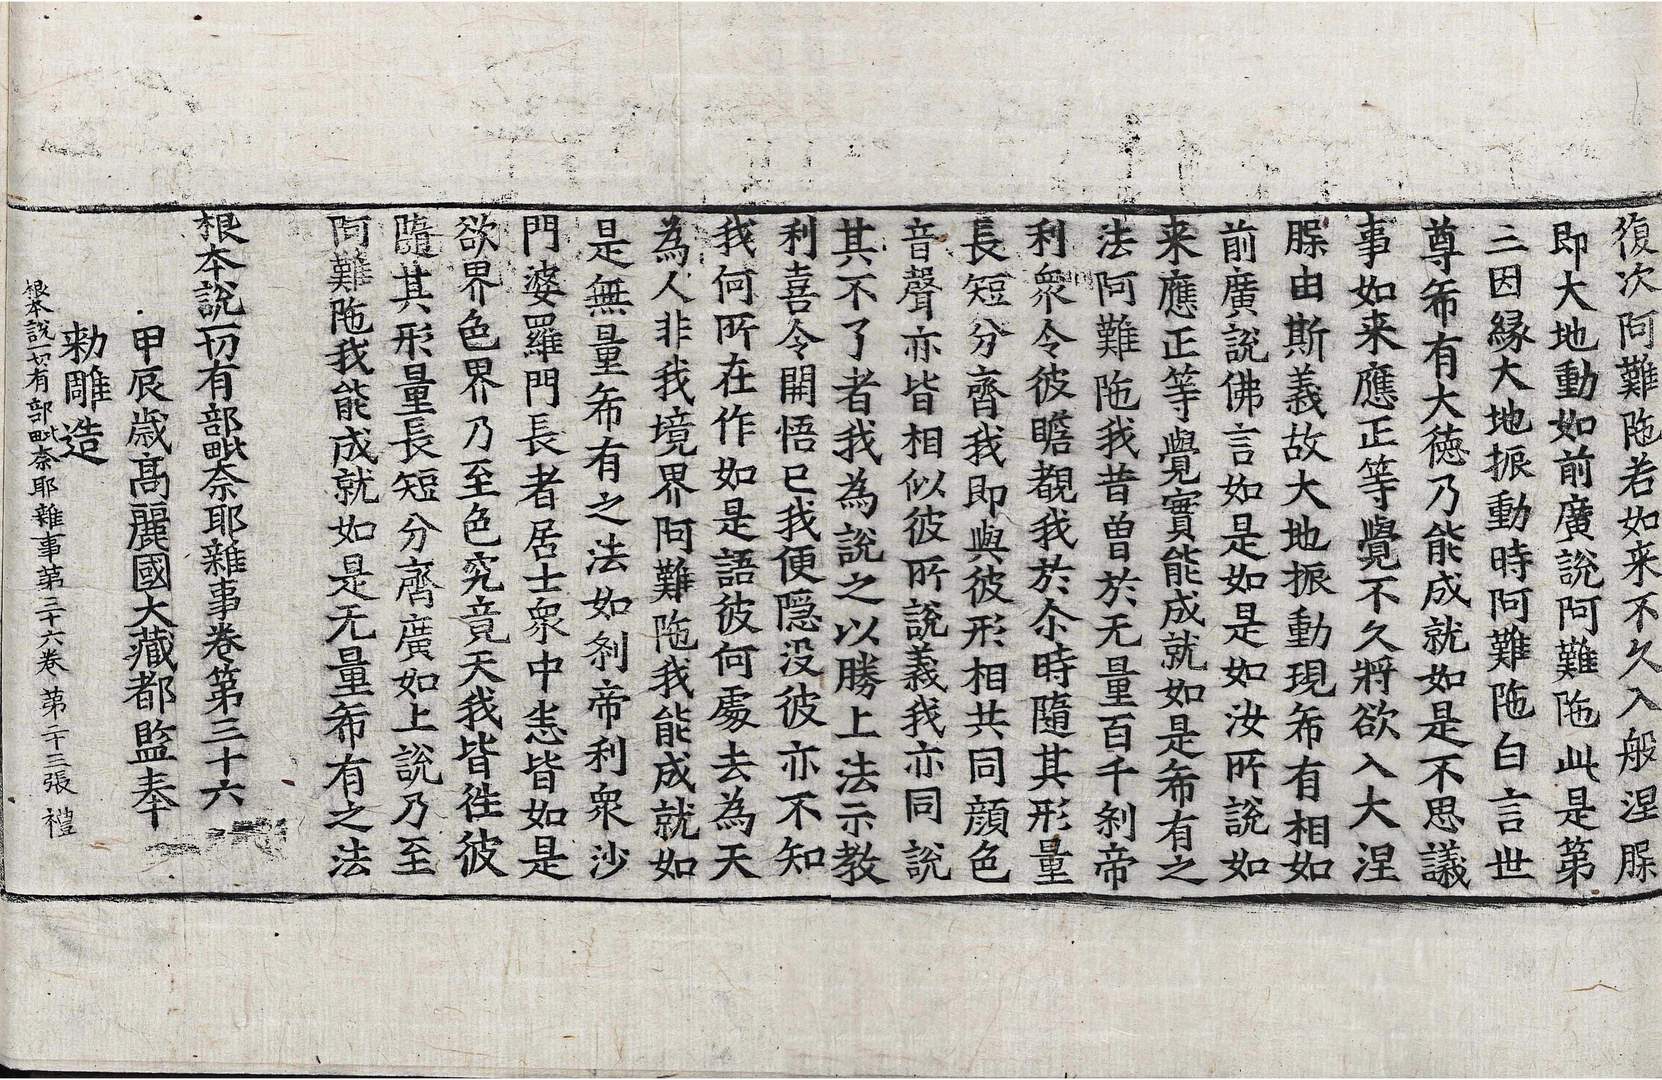 復次阿難陁若如来不久入般涅槃
即大地動如前廣說阿難陁此是第
二因緣大地振動時阿難陁白言世
尊希有大德乃能成就如是不思議
事如来應正等覺不久將欲入大涅
槃由斯義故大地振動現希有相如
前廣說佛言如是如是如汝所說如
来應正等覺實能成就如是希有之
法阿難陁我昔曾於无量百千剎帝
利衆令彼瞻覩我於尒時隨其形量
長短分齊我即與彼形相共同顔色
音聲亦皆相似彼所說義我亦同說
其不了者我為說之以勝上法示教
利喜令開悟已我便隱没彼亦不知
我何所在作如是語彼何處去為天
為人非我境界阿難陁我能成就如
是無量希有之法如剎帝利衆沙
門婆羅門長者居士衆中悉皆如是
欲界色界乃至色究竟天我皆徃彼
隨其形量長短分齊廣如上說乃至
阿難陁我能成就如是无量希有之法
根本說一切有部毗奈耶雜事卷第三十六
甲辰歲高麗國大藏都監奉
勅雕造
根本說一切有部毗奈耶雜事第三十六卷 第二十三張 禮